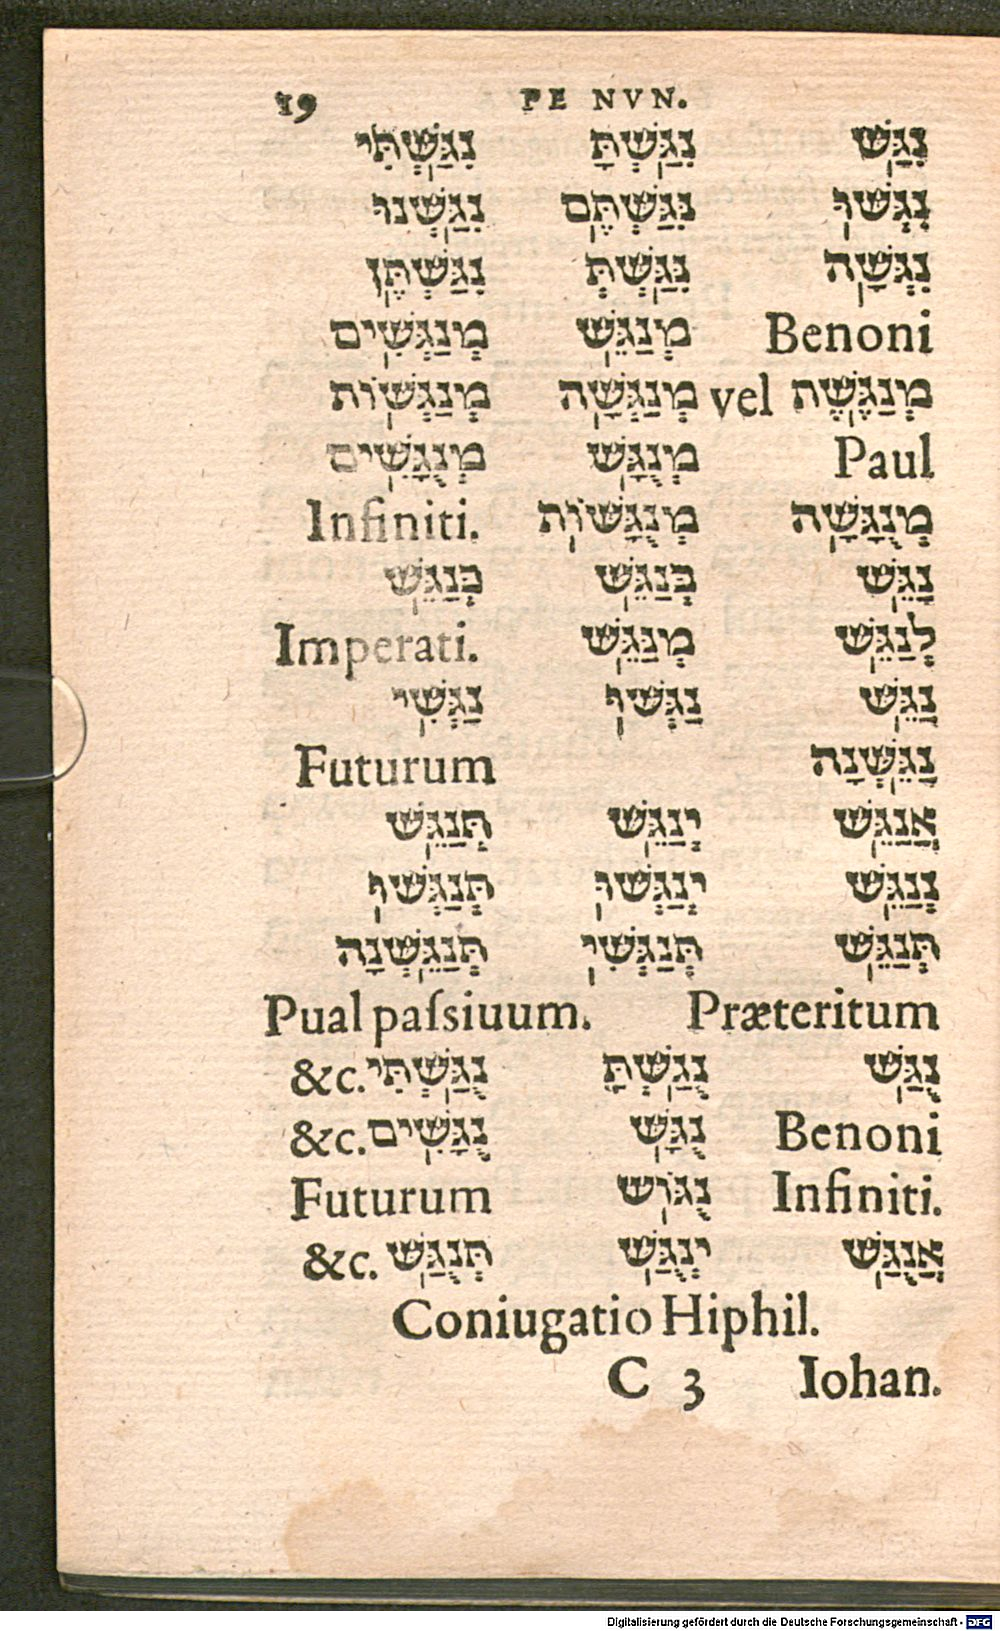 19 PE NVN.
נִגַּשׁ נִגַּשְׁתָּ נִגַּשְׁתִּי
נִגְּשׁוּ נִגַּשְׁתֶּם נִגַּשְׁנוּ
נִגְּשָׁה נִגַּשְׁתְּ נִגַּשְׁתֶּן
Benoni מְנַגֵּשׁ מְנַגְּשִׁים
מְנַגֶּשֶׁת vel מְנַגְּשָׁה מְנַגְּשׁוֹת
Paul מְנֻגָּשׁ מְנֻגָּשִׁים
מְנֻגָּשָׁה מְנֻגָּשׁוֹת Infiniti.
נַגֵּשׁ בְּנַגֵּשׁ כְּנַגֵּשׁ
לְנַגֵּשׁ מִנַּגֵּשׁ Imperati.
נַגֵּשׁ נַגְּשׁוּ נַגְּשִׁי
נַגֵּשְׁנָה Futurum
אֲנַגֵּשׁ יְנַגֵּשׁ תְּנַגֵּשׁ
נְנַגֵּשׁ יְנַגְּשׁוּ תְּנַגְּשׁוּ
תְּנַגֵּשׁ תְּנַגְּשִׁי תְּנַגֵּשְׁנָה
Pual paſsiuum. Præteritum
נֻגַּשׁ נֻגַּשְׁתָּ נֻגַּשְׁתִּי &c.
Benoni נֻגָּשׁ נֻגָּשִׁים &c.
Infiniti. נֻגּוֹשׁ Futurum
אֲנֻגַּשׁ יְנֻגַּשׁ תְּנֻגַּשׁ &c.
Coniugatio Hiphil.
C 3 Iohan.
Digitalisierung gefördert durch die Deutsche Forschungsgemeinschaft - DFG